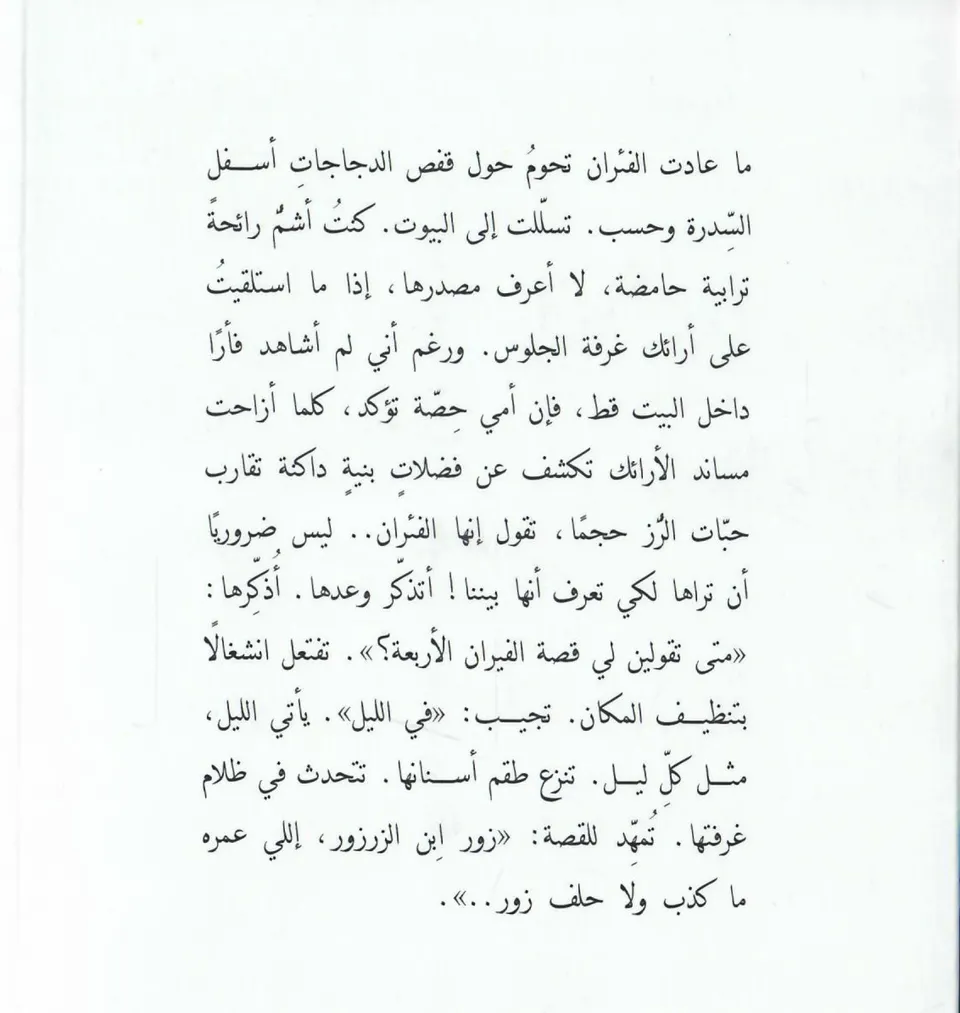 ما عادت الفئران تحومُ حول قفص الدجاجاتِ أسفل
السِّدرة وحسب. تسلّلت إلى البيوت. كنتُ أشمُّ رائحةً
ترابية حامضة، لا أعرف مصدرها، إذا ما استلقيتُ
على أرائك غرفة الجلوس. ورغم أني لم أشاهد فأرًا
داخل البيت قط، فإن أمي حِصّة تؤكد، كلما أزاحت
مساند الأرائك تكشف عن فضلاتٍ بنيةٍ داكنة تقارب
حبّات الرُّز حجمًا، تقول إنها الفئران.. ليس ضروريًا
أن تراها لكي تعرف أنها بيننا! أتذكّر وعدها. أُذكِّرها:
«متى تقولين لي قصة الفيران الأربعة؟». تفتعل انشغالًا
بتنظيف المكان. تجيب: «في الليل». يأتي الليل،
مثل كلِّ ليل. تنزع طقم أسنانها. تتحدث في ظلام
غرفتها. تُمهِّد للقصة: «زور اِبن الزرزور، إللي عمره
ما كذب ولا حلف زور..».